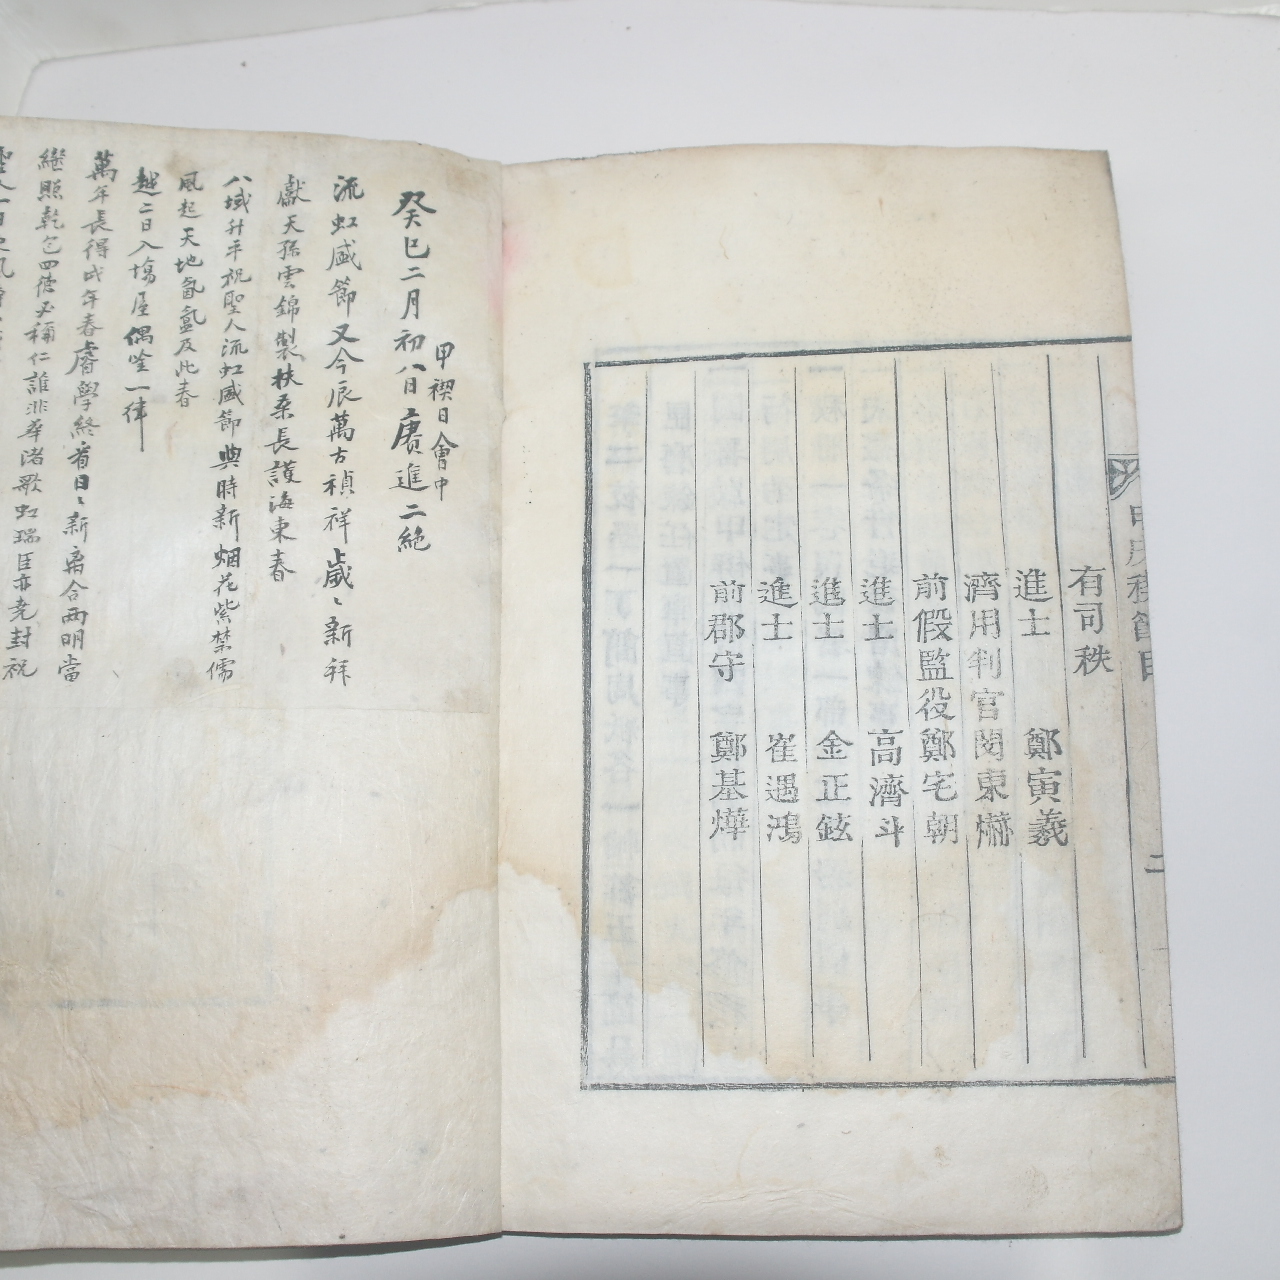 有司秩
進士 鄭寅羲
濟用判官閔東爀
前假監役鄭宅朝
進士 高濟斗
進士 金正鉉
進士 崔遇鴻
前郡守 鄭基燁
二
甲禊日會中
癸巳二月初八日賡進二絶
流虹盛節又今辰萬古禎祥歲〻新拜
獻天孫雲錦製扶桑長護海東春
八域升平祝聖人流虹盛節與時新烟花紫禁儒
風起天地氤氳及此春
越二日入塲屋偶吟一律
萬年長得此年春睿學終看日〻新離合兩明當
繼照乾包四德必稱仁誰非華渚歌虹瑞臣亦堯封祝